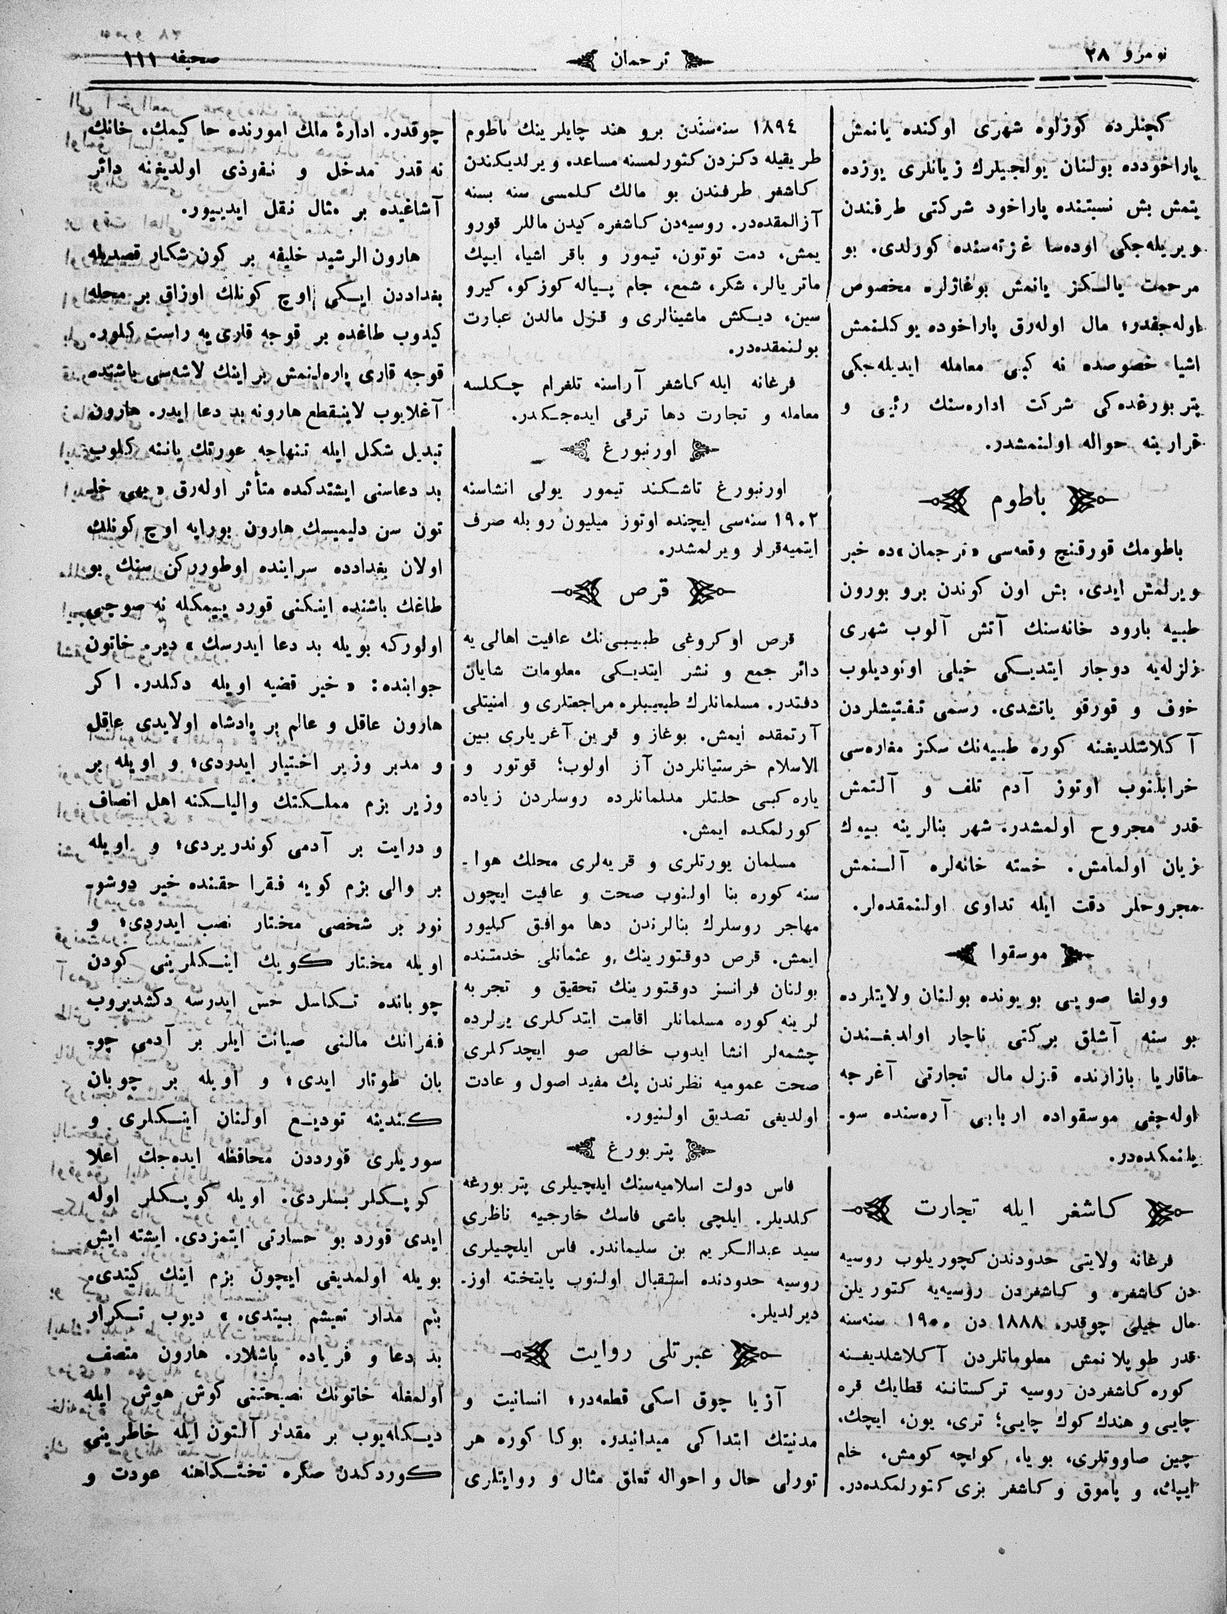 نومرو ٢٨
ترجمان
صحيفه ١١١
كچنلرده كوزلوه شهرى اوكنده يانمش
پاراخودده بولنان يولجيلرك زيانلرى يوزده
يتمش بش نسبتنده پاراخود شركتى طرفندن
ويريله‌جكى اوده‌سا غزته‌سنده كورلدى. بو
مرحمت يالكز يانمش بوغازلره مخصوص
اوله‌جقدر؛ مال اوله‌رق پاراخوده يوكلنمش
اشيا خصوصده نه كبى معامله ايديله‌جكى
پتربورغده‌كى شركت اداره‌سنك رئيى و
قرارينه حواله اولنمشدر.
باطوم
باطومك قورقنچ وقعه‌سى «ترجمان»ده خبر
ويرلمش ايدى. بش اون كوندن برو بورون
طبيه بارود خانه‌سنك آتش آلوب شهرى
زلزله‌يه دوچار ايتديكى خيلى اونوديلوب
خوف و قورقو ياتشدى. رسمى تفتيشلردن
آكلاشلديغنه كوره طبيه‌نك سكز مغاره‌سى
خرابلنوب اوتوز آدم تلف و آلتمش
قدر مجروح اولمشدر. شهر بنالرينه بيوك
زيان اولمامش. خسته خانه‌لره آلنمش
مجروحلر دقت ايله تداوى اولنمقده‌لر.
موسقوا
وولغا صويى بويونده بولنان ولايتلرده
بو سنه آشلق بركتى ناچار اولديغندن
ماقاريا بازارنده قزل مال تجارتى آغرجه
اوله‌جغى موسقواده اربابى آره‌سنده سو-
يلنمكده‌در.
كاشغر ايله تجارت
فرغانه ولايتى حدودندن كچوريلوب روسيه
دن كاشغره و كاشغردن روسيه‌يه كتوريلن
مال خيلى چوقدر. ١٨٨٨ دن ١٩٠٠ سنه‌سنه
قدر طوپلانمش معلوماتلردن آكلاشلديغنه
كوره كاشغردن روسيه تركستاننه قطايك قره
چايى و هندك كوك چايى؛ ترى، يون، ايچك،
چين صاووتلرى، بويا، كواچه كومش، خام
ايپك، و پاموق و كاشغر بزى كتورلمكده‌در.
١٨٩٤ سنه‌سندن برو هند چايلرينك باطوم
طريقيله دكزدن كتورلمسنه مساعده ويرلديكندن
كاشغر طرفندن بو مالك كلمسى سنه بسنه
آزالمقده‌در. روسيه‌دن كاشغره كيدن ماللر قورو
يمش، دمت توتون، تيمور و باقر اشيا، ايپك
ماتريالر، شكر، شمع، جام پياله كوزكو، كيرو
سين، ديكش ماشينالرى و قزل مالدن عبارت
بولنمقده‌در.
فرغانه ايله كاشغر آراسنه تلغرام چكلسه
معامله و تجارت دها ترقى ايده‌جكدر.
اورنبورغ
اورنبورغ تاشكند تيمور يولى انشاسنه
١٩٠٢ سنه‌سى ايچنده اوتوز ميليون روبله صرف
ايتميه‌قرار ويرلمشدر.
قرص
قرص اوكروغى طبيبى‌نك عافيت اهالى‌يه
دائر جمع و نشر ايتديكى معلومات شايان
دقتدر. مسلمانلرك طبيبلره مراجعتلرى و امنيتلى
آرتمقده ايمش. بوغاز و قرين آغريلرى بين
الاسلام خرستيانلردن آز اولوب؛ قوتور و
ياره‌كبى حلتلر مدلمانلرده روسلردن زياده
كورلمكده ايمش.
مسلمان يورتلرى و قريه‌لرى محلك هوا-
سنه كوره بنا اولنوب صحت و عافيت ايچون
مهاجر روسلرك بنالرندن دها موافق كليور
ايمش. قرص دوقتورينك و عثمانلى خدمتنده
بولنان فرانسز دوقتورينك تحقيق و تجربه
لرينه‌كوره مسلمانلر اقامت ايتدكلرى يرلرده
چشمه‌لر انشا ايدوب خالص صو ايچدكلرى
صحت عموميه نظرندن پك مفيد اصول و عادت
اولديغى تصديق اولنيور.
پتربورغ
فاس دولت اسلاميه‌سنك ايلچيلرى پتربورغه
كلديلر. ايلچى باشى فاسك خارجيه ناظرى
سيد عبدالكريم بن سليماندر. فاس ايلچيلرى
روسيه حدودنده استقبال اولنوب پايتخته اوز.
ديرلديلر.
عبرتلى روايت
آزيا چوق اسكى قطعه‌در؛ انسانيت و
مدنيتك ابتداكى ميدانيدر. بوكا كوره هر
تورلى حال و احواله تعلق مثال و روايتلرى
چوقدر. ادارهٔ مالك امورنده حاكيمك، خانك
نه قدر مدخل و نفوذى اولديغنه دائر
آشاغيده بر مثال نقل ايديیور.
هارون الرشيد خليفه بر كون شكار قصديله
بغداددن ايكى اوچ كونلك اوزاق بر محله
كيدوب طاغده بر قوجه قارى‌يه راست كلور.
قوجه قارى پاره‌لنمش بر اينك لاشه‌سى باشنده
آغلايوب لاينقطع هارونه بد دعا ايدر. هارون
تبديل شكل ايله تنهاجه عورتك ياننه كلوب
بد دعاسنى ايشتدكده متأثر اوله‌رق «بهى خا-
تون سن دليميسك هارون بورايه اوچ كونلك
اولان بغدادده سراينده اوطورركن سنك بو
طاغك باشنده اينكنى قورد ييمكله نه صوچى
اولوركه بويله بد دعا ايدرسك» دير. خاتون
جوابنده: «خير قضيه اويله دكلدر. اكر
هارون عاقل و عالم بر پادشاه اولايدى عاقل
و مدبر وزير اختيار ايدردى؛ و اويله بر
وزير بزم مملكتك واليلكنه اهل انصاف
و درايت بر آدمى كوندريردى؛ و اويله
بر والى بزم كويه فقرا حقنده خير دوشو-
نور بر شخصى مختار نصب ايدردى؛ و
اويله مختار كويك اينكلرينى كودن
چوبانده تكاسل حس ايدرسه دكشديروب
فقرانك مالنى صيانت ايلر بر آدمى چو-
بان طوتار ايدى؛ و اويله بر چوبان
كندينه توديع اولنان اينكلرى و
سوريلرى قورددن محافظه ايده‌جك اعلا
كوپكلر بسلردى. اويله كوپكلر اوله
ايدى قورد بو جسارتى ايتمزدى. ايشته ايش
بويله اولمديغى ايچون بزم اينك كيتدى.
بنم مدار تعيشم بيتدى» ديوب تكرار
بد دعا و فرياده باشلار. هارون متصف
اولمغله خاتونك نصيحتنى كوش هوش ايله
ديكله‌يوب بر مقدار آلتون ايله خاطرينى
كوردكدن صكره تختكاهنه عودت و